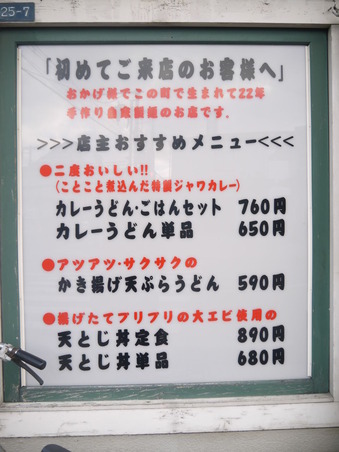 25-7
「初めてご来店のお客様へ」
おかげ様でこの町で生まれて22年
手作り自家製麺のお店です。
>>>店主おすすめメニュー<<<
●二度おいしい!!
(ことこと煮込んだ特製ジャワカレー)
カレーうどん・ごはんセット 760円
カレーうどん単品 650円
●アツアツ・サクサクの
かき揚げ天ぷらうどん 590円
●揚げたてプリプリの大エビ使用の
天とじ丼定食 890円
天とじ丼単品 680円